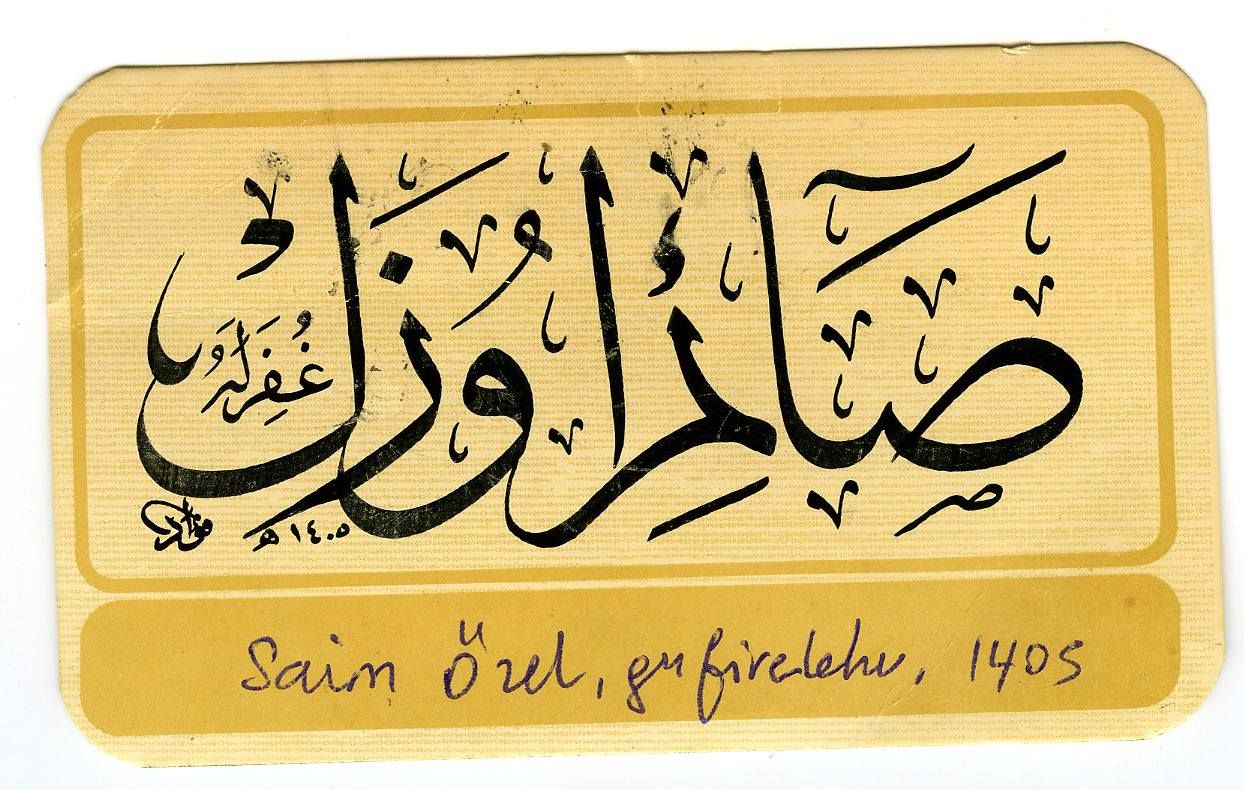 صائم اوزل
غفرله
١٤٠٥ هـ
Saim Özel, gufirelehu, 1405